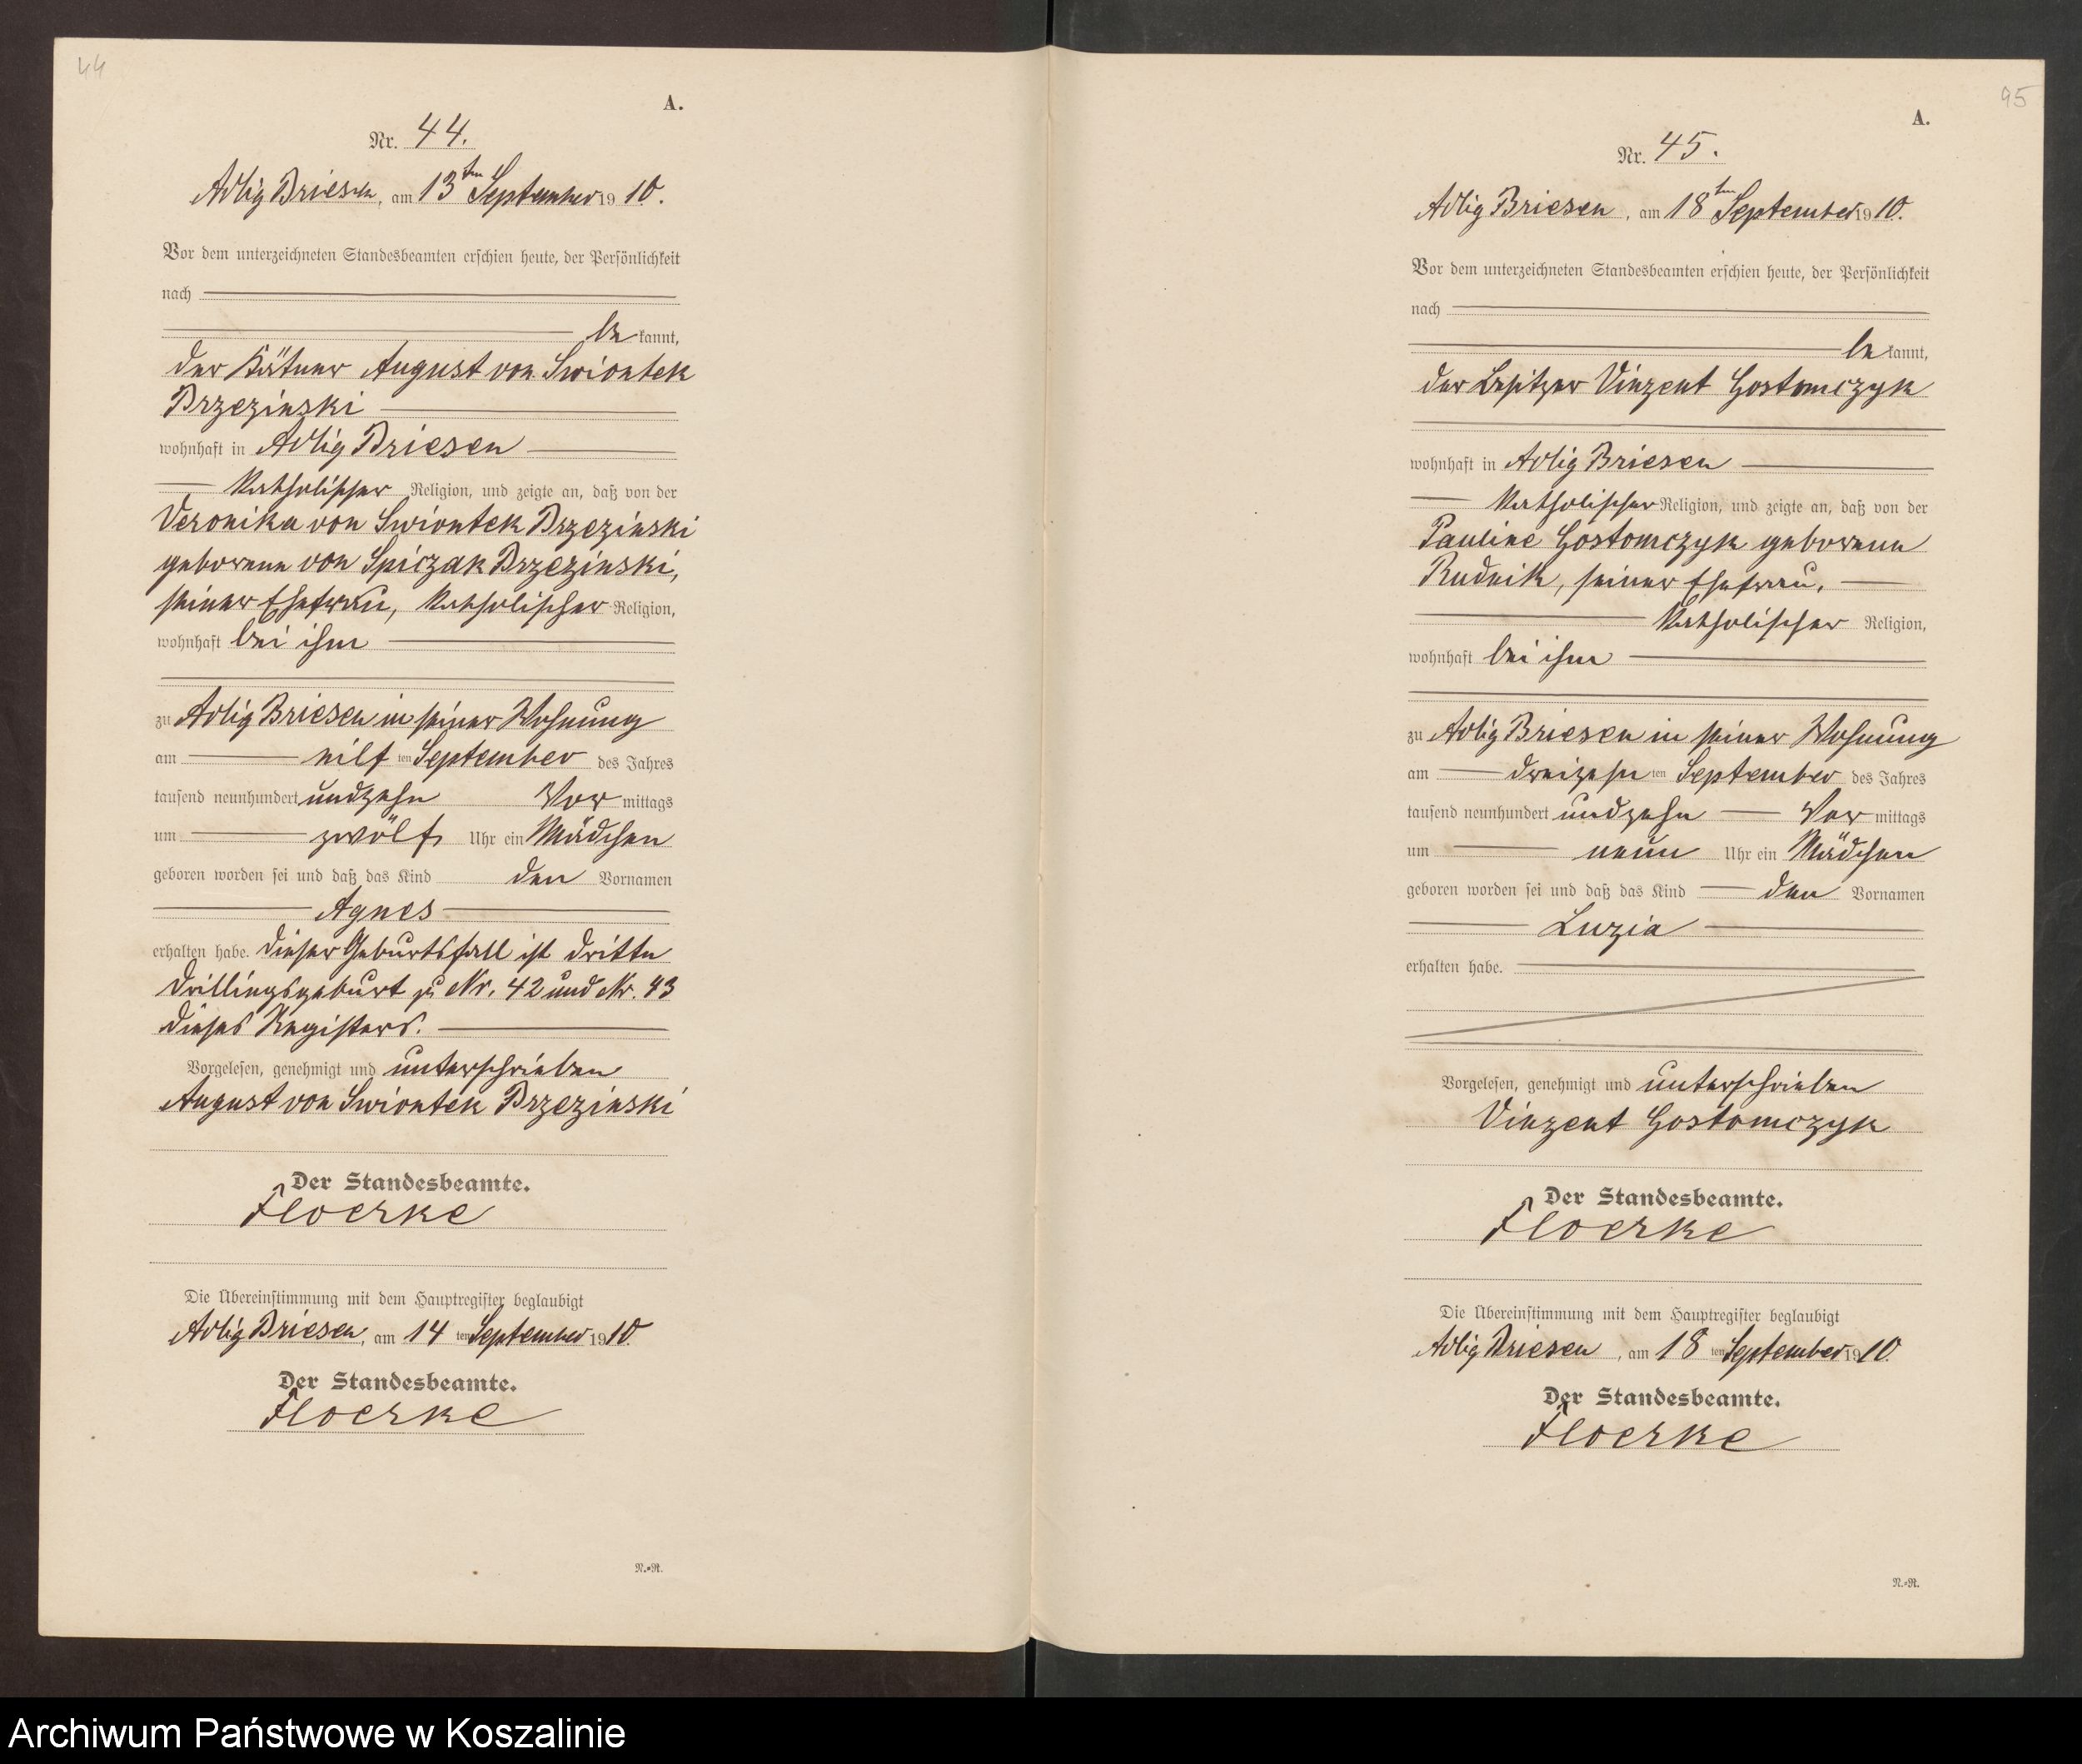 44
A.
Nr. 44.
Adlig Briesen, am 13ten September 1910.
Vor dem unterzeichneten Standesbeamten erschien heute, der Persönlichkeit
nach
bekannt,
der Kätner August von Swiontek
Brzezinski
wohnhaft in Adlig Briesen
katholischer Religion, und zeigte an, daß von der
Veronika von Swiontek Brzezinski
geborene von Spiczak Brzezinski,
seiner Ehefrau, katholischer Religion,
wohnhaft bei ihm
zu Adlig Briesen in seiner Wohnung
am eilften September des Jahres
tausend neunhundert undzehn Vormittags
um zwölf Uhr ein Mädchen
geboren worden sei und daß das Kind den Vornamen
Agnes
erhalten habe. Dieser Geburtsfall ist dritte
Drillingsgeburt zu Nr. 42 und Nr. 43
dieses Registers.
Vorgelesen, genehmigt und unterschrieben
August von Swiontek Brzezinski
Der Standesbeamte.
Floerke
Die Übereinstimmung mit dem Hauptregister beglaubigt
Adlig Briesen, am 14ten September 1910.
Der Standesbeamte.
Floerke
N.=R.
95
A.
Nr. 45.
Adlig Briesen, am 18ten September 1910.
Vor dem unterzeichneten Standesbeamten erschien heute, der Persönlichkeit
nach
bekannt,
der Besitzer Vinzent Gostomczyk
wohnhaft in Adlig Briesen
katholischer Religion, und zeigte an, daß von der
Pauline Gostomczyk geborene
Rudnik, seiner Ehefrau,
katholischer Religion,
wohnhaft bei ihm
zu Adlig Briesen in seiner Wohnung
am dreizehnten September des Jahres
tausend neunhundert undzehn Vormittags
um neun Uhr ein Mädchen
geboren worden sei und daß das Kind den Vornamen
Luzia
erhalten habe.
Vorgelesen, genehmigt und unterschrieben
Vinzent Gostomczyk
Der Standesbeamte.
Floerke
Die Übereinstimmung mit dem Hauptregister beglaubigt
Adlig Briesen, am 18ten September 1910.
Der Standesbeamte.
Floerke
N.=R.
Archiwum Państwowe w Koszalinie